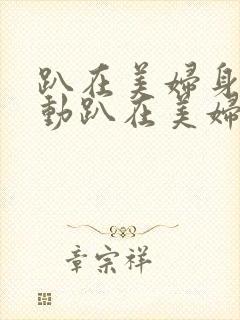 趴在美婦身
動趴在美婦
章宗祥